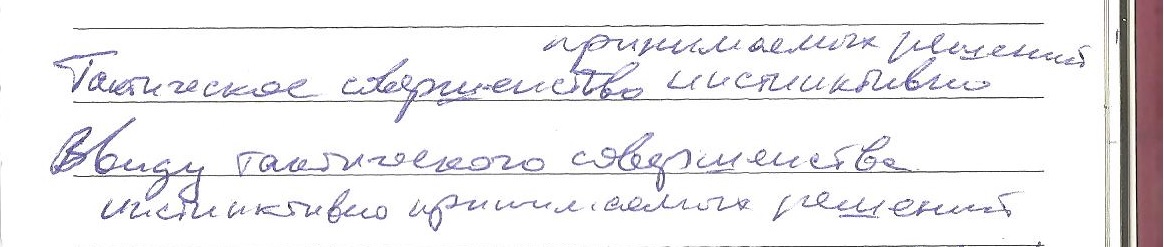 принимаемых решений
Тактическое совершенство инстинктивно
Ввиду тактического совершенства
инстинктивно принимаемых решений